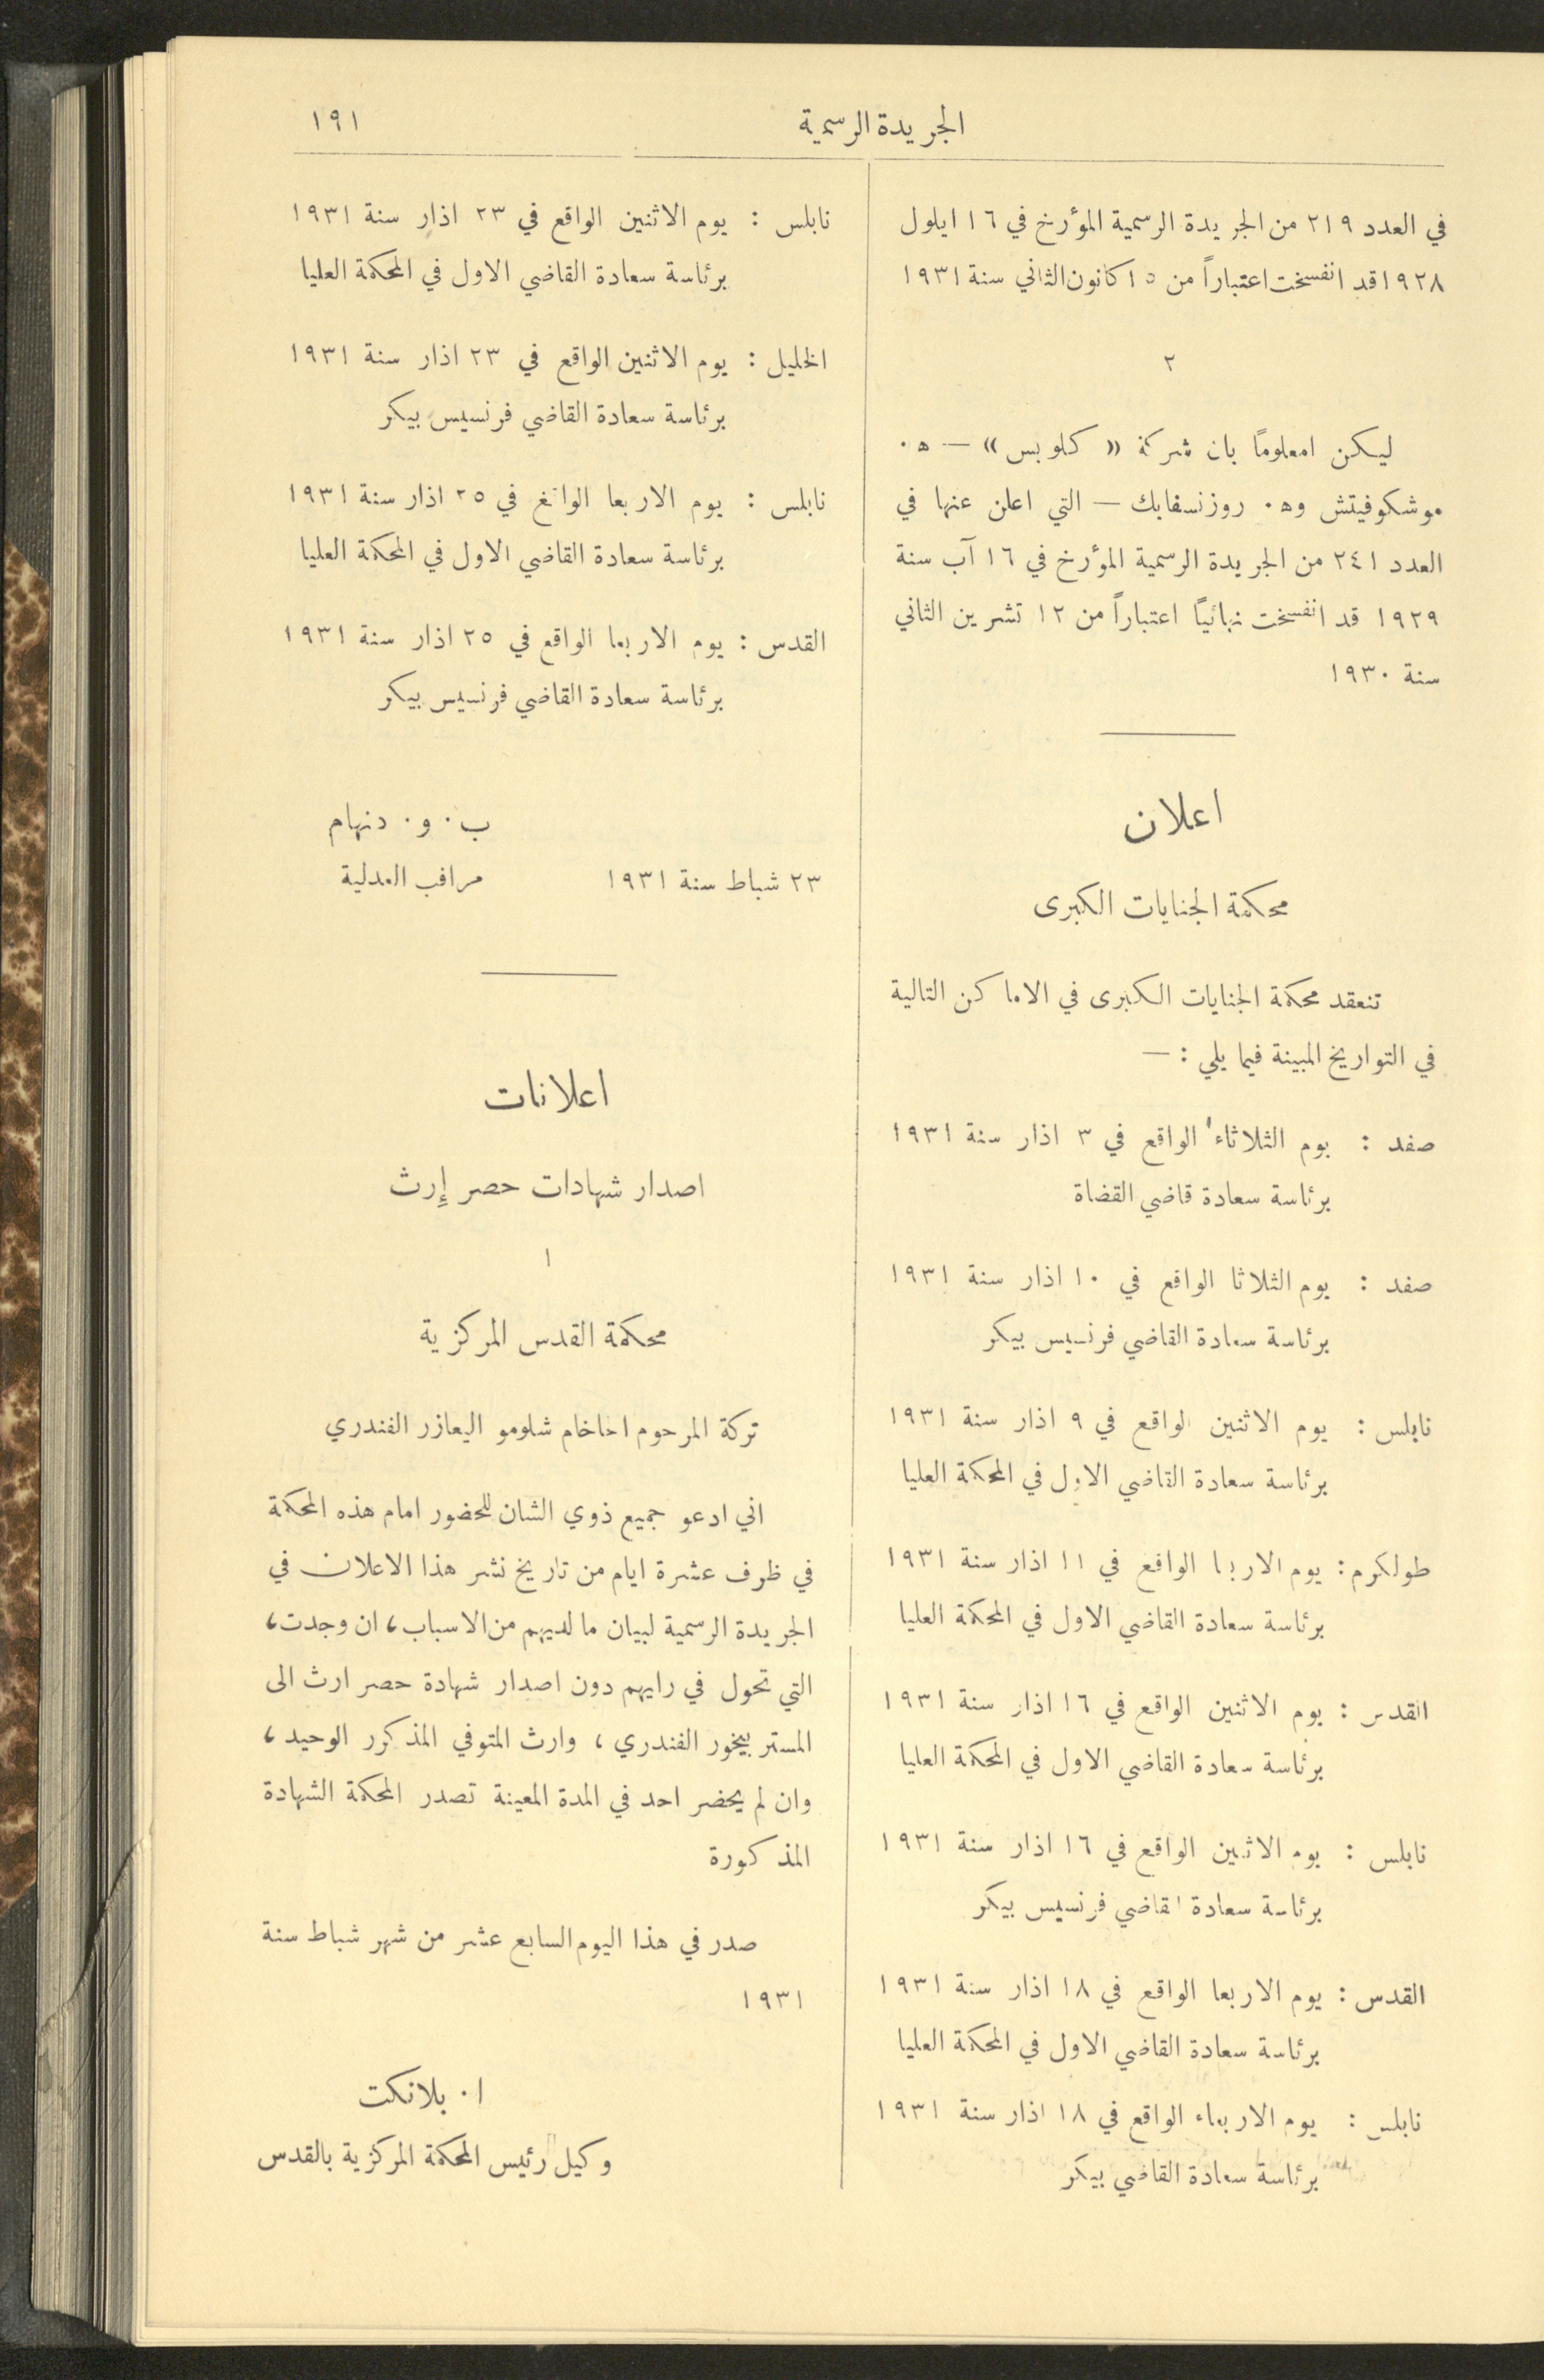 الجريدة الرسمية
١٩١
في العدد ٢١٩ من الجريدة الرسمية المؤرخ في ١٦ ايلول
١٩٢٨ قد انفسخت اعتباراً من ١٥ كانون الثاني سنة ١٩٣١
٢
ليكن امعلومًا بان شركة « كلوبس » — ه.
موشكوفيتش وه. روزنسفابك — التي اعلن عنها في
العدد ٢٤١ من الجريدة الرسمية المؤرخ في ١٦ آب سنة
١٩٢٩ قد انفسخت نهائيًا اعتباراً من ١٢ تشرين الثاني
سنة ١٩٣٠
اعلان
محكمة الجنايات الكبرى
تنعقد محكمة الجنايات الكبرى في الاماكن التالية
في التواريخ المبينة فيما يلي : —
صفد : يوم الثلاثاء الواقع في ٣ اذار سنة ١٩٣١
برئاسة سعادة قاضي القضاة
صفد : يوم الثلاثا الواقع في ١٠ اذار سنة ١٩٣١
برئاسة سعادة القاضي فرنسيس بيكر
نابلس : يوم الاثنين الواقع في ٩ اذار سنة ١٩٣١
برئاسة سعادة القاضي الاول في المحكمة العليا
طولكرم : يوم الاربا الواقع في ١١ اذار سنة ١٩٣١
برئاسة سعادة القاضي الاول في المحكمة العليا
القدس : يوم الاثنين الواقع في ١٦ اذار سنة ١٩٣١
برئاسة سعادة القاضي الاول في المحكمة العليا
نابلس : يوم الاثنين الواقع في ١٦ اذار سنة ١٩٣١
برئاسة سعادة القاضي فرنسيس بيكر
القدس : يوم الاربعا الواقع في ١٨ اذار سنة ١٩٣١
برئاسة سعادة القاضي الاول في المحكمة العليا
نابلس : يوم الاربعاء الواقع في ١٨ اذار سنة ١٩٣١
برئاسة سعادة القاضي بيكر
نابلس : يوم الاثنين الواقع في ٢٣ اذار سنة ١٩٣١
برئاسة سعادة القاضي الاول في المحكمة العليا
الخليل : يوم الاثنين الواقع في ٢٣ اذار سنة ١٩٣١
برئاسة سعادة القاضي فرنسيس بيكر
نابلس : يوم الاربعا الواقع في ٢٥ اذار سنة ١٩٣١
برئاسة سعادة القاضي الاول في المحكمة العليا
القدس : يوم الاربعا الواقع في ٢٥ اذار سنة ١٩٣١
برئاسة سعادة القاضي فرنسيس بيكر
ب. و. دنهام
٢٣ شباط سنة ١٩٣١ مراقب العدلية
اعلانات
اصدار شهادات حصر إرث
١
محكمة القدس المركزية
تركة المرحوم احاخام شلومو اليعازر الفندري
اني ادعو جميع ذوي الشان للحضور امام هذه المحكمة
في ظرف عشرة ايام من تاريخ نشر هذا الاعلان في
الجريدة الرسمية لبيان ما لديهم من الاسباب، ان وجدت،
التي تحول في رايهم دون اصدار شهادة حصر ارث الى
المستر بيخور الفندري ، وارث المتوفي المذكور الوحيد ،
وان لم يحضر احد في المدة المعينة تصدر المحكمة الشهادة
المذكورة
صدر في هذا اليوم السابع عشر من شهر شباط سنة
١٩٣١
ا. بلانكت
وكيل رئيس المحكمة المركزية بالقدس